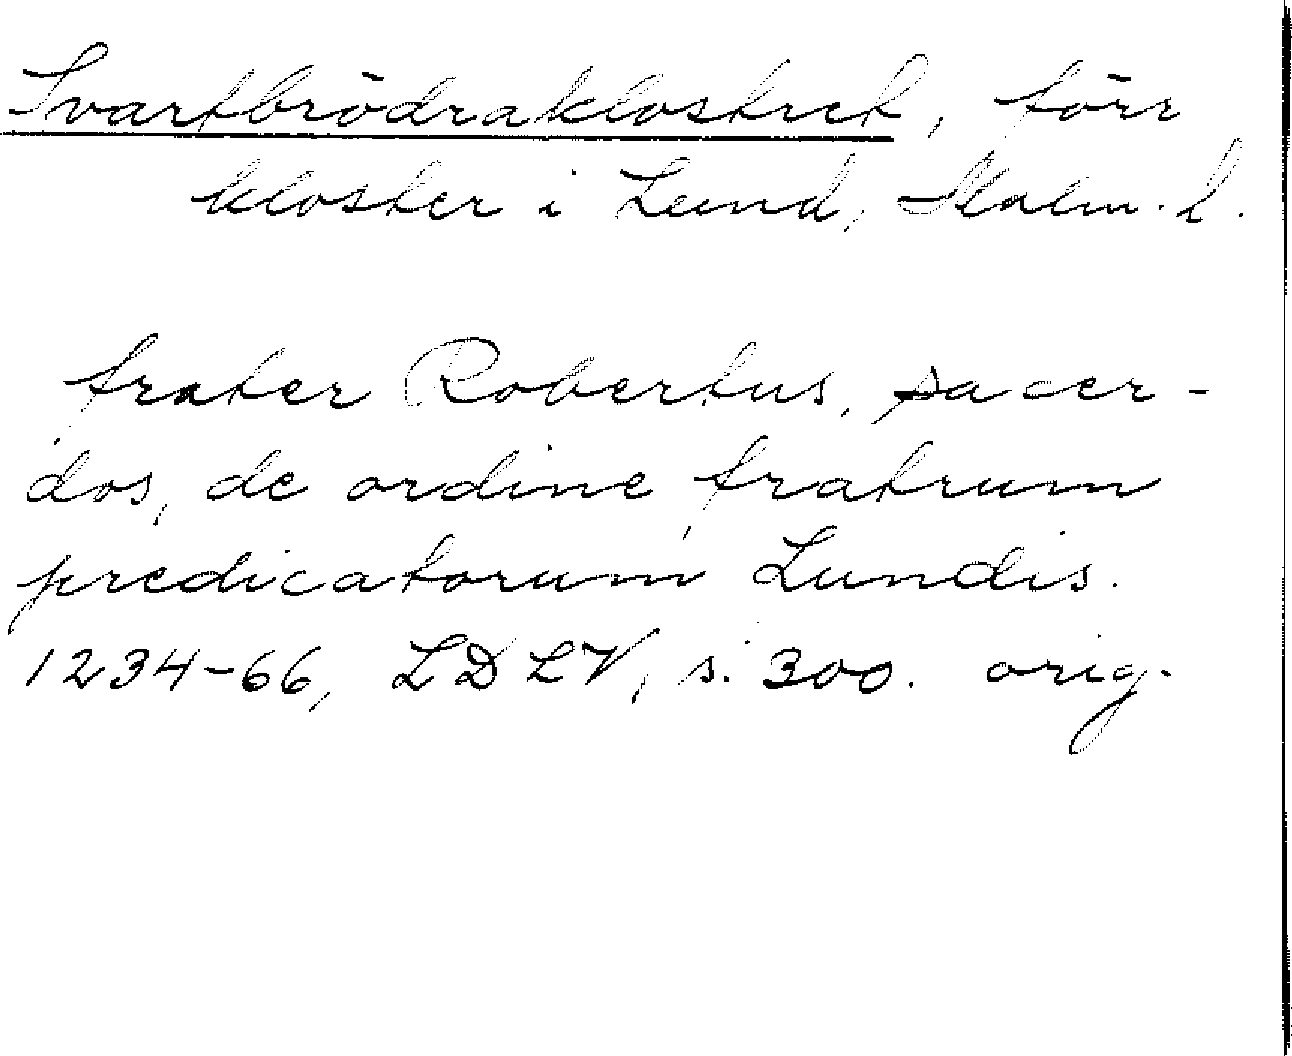 Svartbrödraklostret, förr
kloster i Lund, Malm. l.
frater Robertus, sacer-
dos, de ordine fratrum
predicatorum Lundis.
1234-66, LDLV, s. 300. orig.